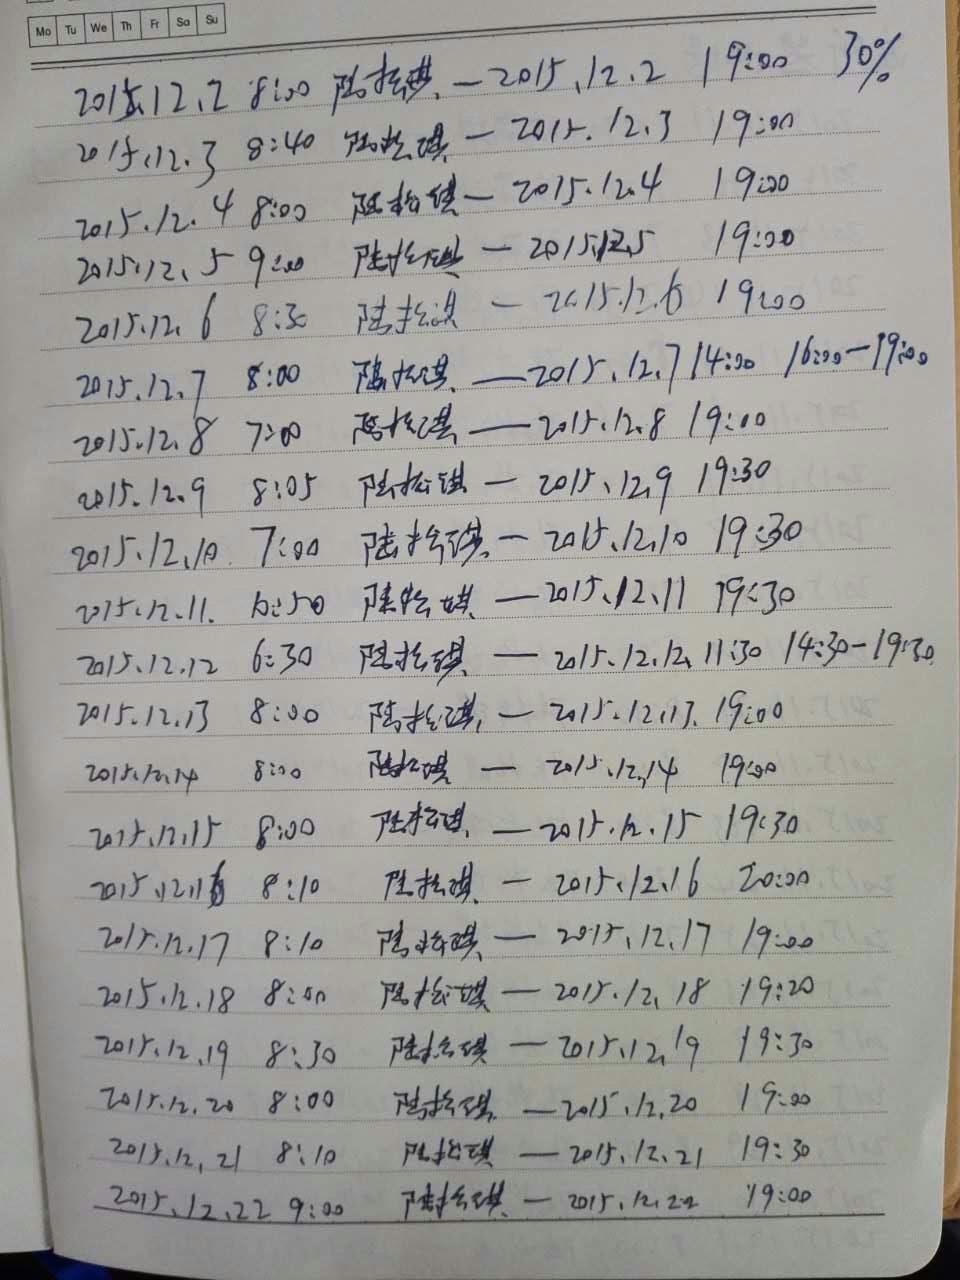 Mo Tu We Th Fr Sa Su
2015.12.2 8:00 陆松琪 — 2015.12.2 19:00 30%
2015.12.3 8:40 陆松琪 — 2015.12.3 19:00
2015.12.4 8:00 陆松琪 — 2015.12.4 19:00
2015.12.5 9:00 陆松琪 — 2015.12.5 19:00
2015.12.6 8:30 陆松琪 — 2015.12.6 19:00
2015.12.7 8:00 陆松琪 — 2015.12.7 14:00 16:00-19:00
2015.12.8 7:00 陆松琪 — 2015.12.8 19:00
2015.12.9 8:05 陆松琪 — 2015.12.9 19:30
2015.12.10 7:00 陆松琪 — 2015.12.10 19:30
2015.12.11. 6:50 陆松琪 — 2015.12.11 19:30
2015.12.12 6:30 陆松琪 — 2015.12.12. 11:30 14:30-19:30
2015.12.13 8:00 陆松琪 — 2015.12.13. 19:00
2015.12.14 8:00 陆松琪 — 2015.12.14 19:00
2015.12.15 8:00 陆松琪 — 2015.12.15 19:30
2015.12.16 8:10 陆松琪 — 2015.12.16 20:00
2015.12.17 8:10 陆松琪 — 2015.12.17 19:00
2015.12.18 8:00 陆松琪 — 2015.12.18 19:20
2015.12.19 8:30 陆松琪 — 2015.12.19 19:30
2015.12.20 8:00 陆松琪 — 2015.12.20 19:00
2015.12.21 8:10 陆松琪 — 2015.12.21 19:30
2015.12.22 9:00 陆松琪 — 2015.12.22 19:00